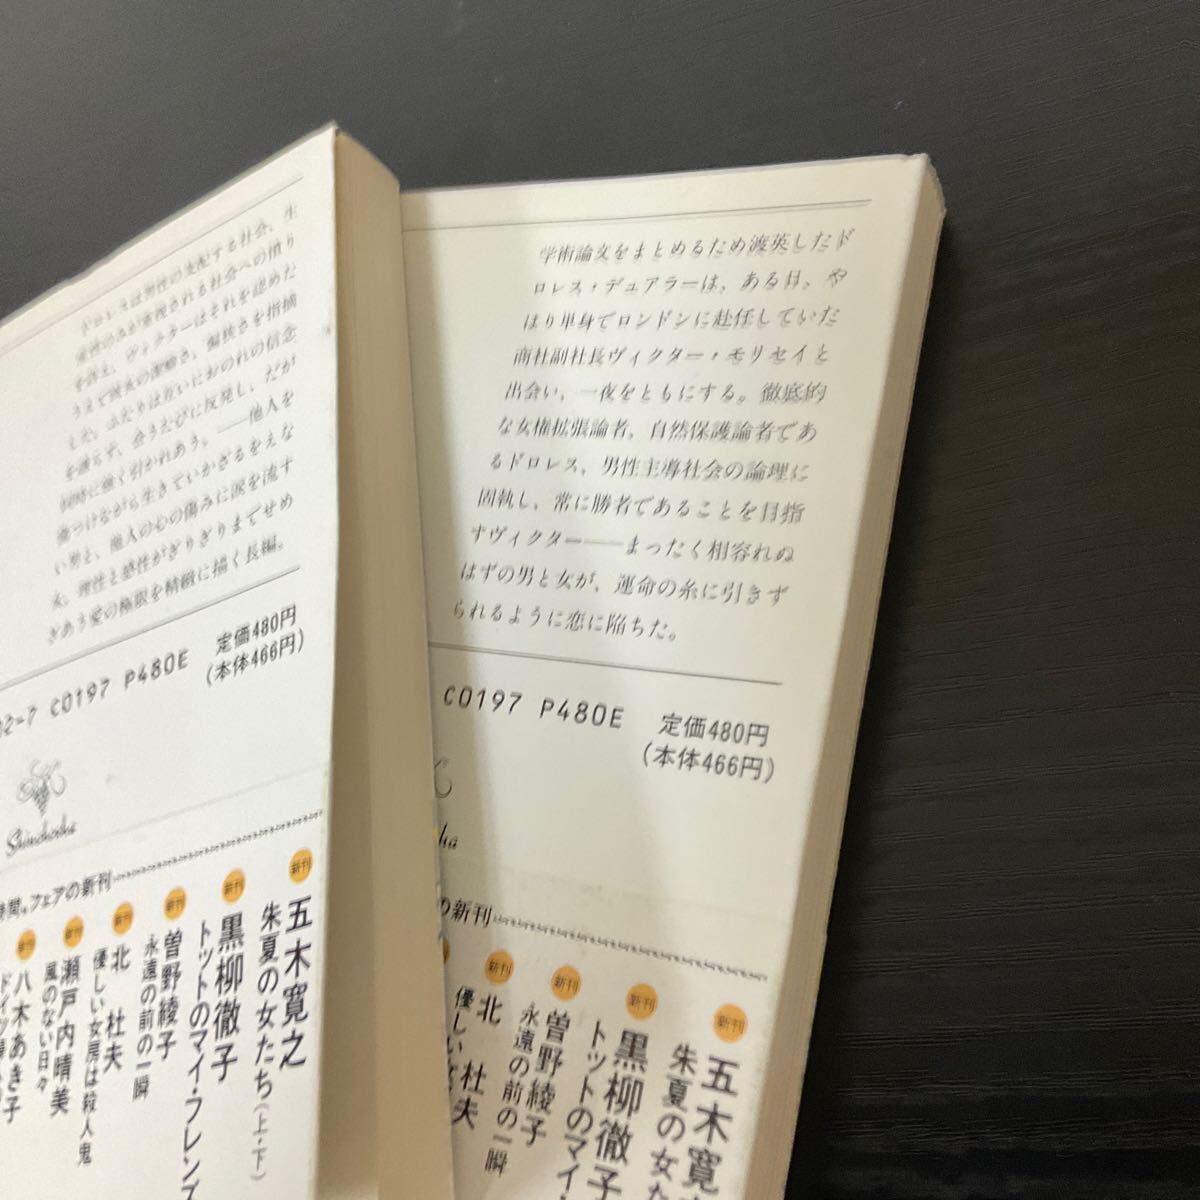 ドロレスは男性の支配する社会、生
産性のみが重視される社会への憤り
を訴え、ヴィクターはそれを認めた
うえで彼女の潔癖さ、偏狭さを指摘
した。ふたりは互いにおのれの信念
を譲らず、会うたびに反発し、だが
同時に強く引かれあう。——他人を
傷つけながら生きていかざるをえな
い男と、他人の心の傷みに涙を流す
女。理性と感性がぎりぎりまでせめ
ぎあう愛の極限を精緻に描く長編。
02-7 C0197 P480E 定価480円
(本体466円)
Shinchosha
フェアの新刊
新刊 五木寛之
朱夏の女たち(上・下)
新刊 黒柳徹子
トットのマイ・フレンズ
新刊 曽野綾子
永遠の前の一瞬
新刊 北 杜夫
優しい女房は殺人鬼
新刊 瀬戸内晴美
風のない日々
新刊 八木あき子
学術論文をまとめるため渡英したド
ロレス・デュアラーは、ある日、や
はり単身でロンドンに赴任していた
商社副社長ヴィクター・モリセイと
出会い、一夜をともにする。徹底的
な女権拡張論者、自然保護論者であ
るドロレス、男性主導社会の論理に
固執し、常に勝者であることを目指
すヴィクター——まったく相容れぬ
はずの男と女が、運命の糸に引きず
られるように恋に陥ちた。
C0197 P480E 定価480円
(本体466円)
の新刊
新刊 五木寛
朱夏の女た
新刊 黒柳徹子
トットのマイ・
新刊 曽野綾子
永遠の前の一瞬
新刊 北 杜夫
優しい